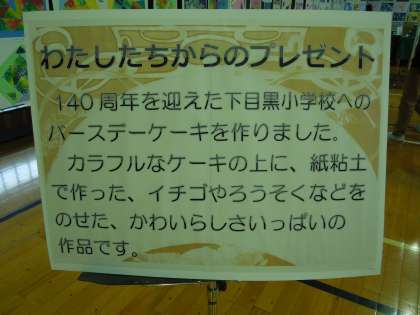 わたしたちからのプレゼント
140周年を迎えた下目黒小学校への
バースデーケーキを作りました。
カラフルなケーキの上に、紙粘土
で作った、イチゴやろうそくなどを
のせた、かわいらしさいっぱいの
作品です。